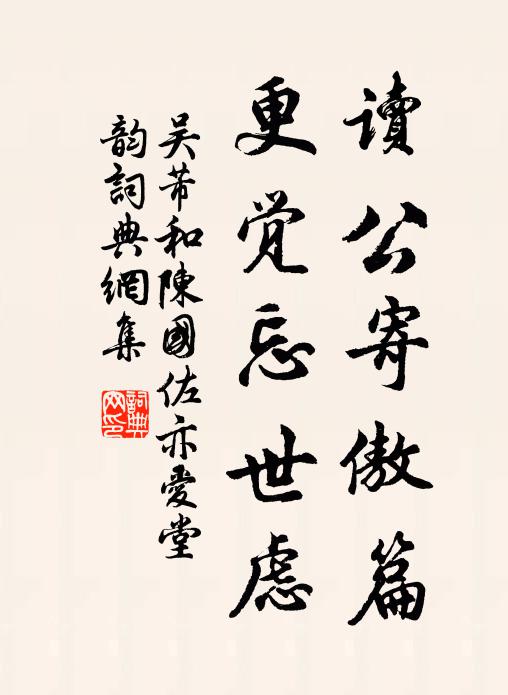 讀公寄傲篇
更覺忘世慮
吴芾和陳國佐亦愛堂
韵詞典網集
詞典网印